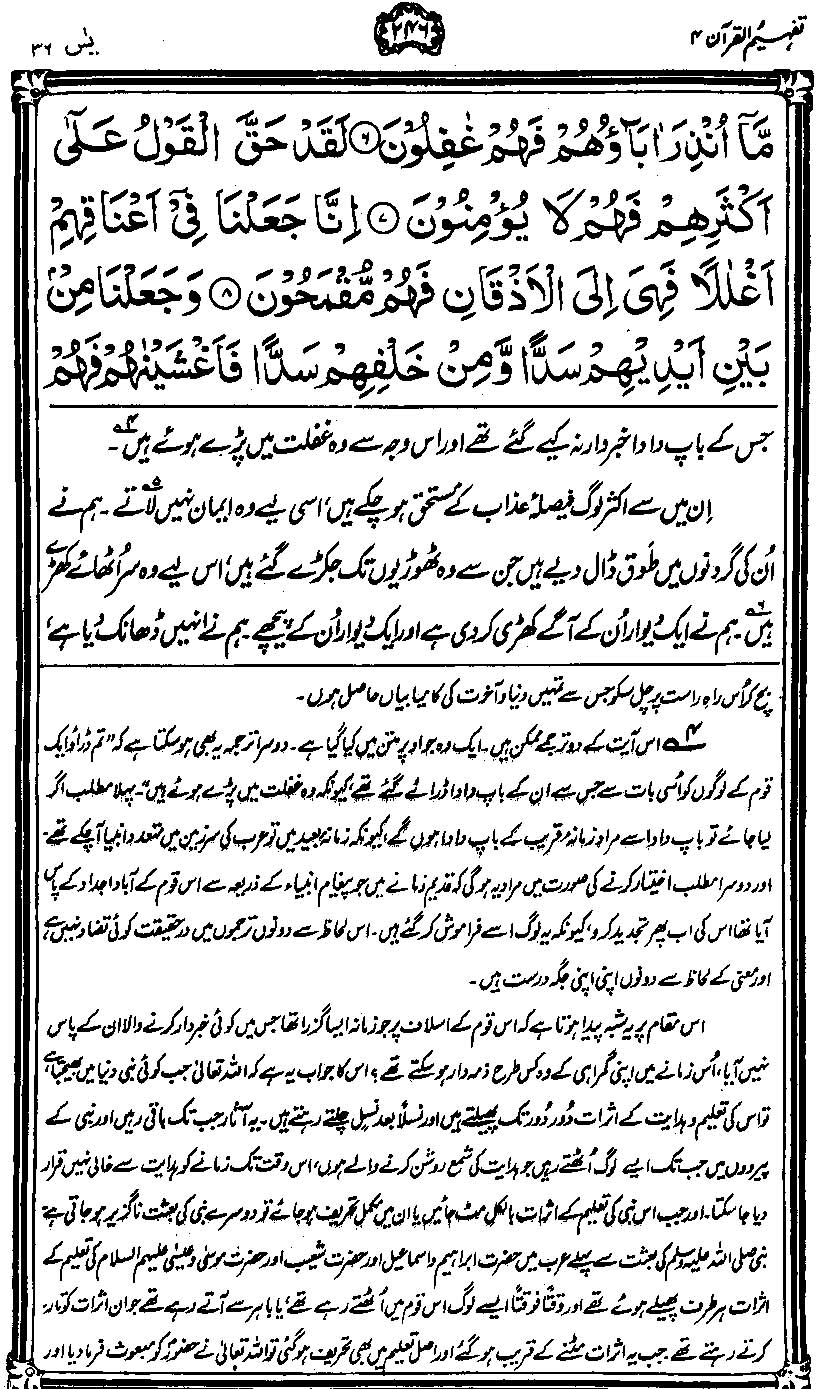 تفہیم القرآن ۴
۲۴۶
یٰس ۳۶
مَّآ اُنْذِرَ اٰبَآؤُهُمْ فَهُمْ غٰفِلُوْنَ ۶ لَقَدْ حَقَّ الْقَوْلُ عَلٰٓى
اَكْثَرِهِمْ فَهُمْ لَا يُؤْمِنُوْنَ ۷ اِنَّا جَعَلْنَا فِيْٓ اَعْنَاقِهِمْ
اَغْلٰلًا فَهِىَ اِلَى الْاَذْقَانِ فَهُمْ مُّقْمَحُوْنَ ۸ وَجَعَلْنَا مِنْۢ
بَيْنِ اَيْدِيْهِمْ سَدًّا وَّمِنْ خَلْفِهِمْ سَدًّا فَاَغْشَيْنٰهُمْ فَهُمْ
جس کے باپ دادا خبردار نہ کیے گئے تھے اور اس وجہ سے وہ غفلت میں پڑے ہوئے ہیں۴۔
اِن میں سے اکثر لوگ فیصلۂ عذاب کے مستحق ہو چکے ہیں، اسی لیے وہ ایمان نہیں لاتے۵۔ ہم نے
اُن کی گردنوں میں طَوق ڈال دیے ہیں جن سے وہ ٹھوڑیوں تک جکڑے گئے ہیں، اس لیے وہ سر اُٹھائے کھڑے
ہیں۶۔ ہم نے ایک دیوار اُن کے آگے کھڑی کر دی ہے اور ایک دیوار اُن کے پیچھے۔ ہم نے انہیں ڈھانک دیا ہے،
بچ کر اُس راہِ راست پر چل سکو جس سے تمہیں دنیا و آخرت کی کامیابیاں حاصل ہوں۔
۴ اس آیت کے دو ترجمے ممکن ہیں۔ ایک وہ جو اوپر متن میں کیا گیا ہے۔ دوسرا ترجمہ یہ بھی ہو سکتا ہے کہ ”تم ڈراؤ ایک
قوم کے لوگوں کو اُسی بات سے جس سے ان کے باپ دادا ڈرائے گئے تھے، کیونکہ وہ غفلت میں پڑے ہوئے ہیں“۔ پہلا مطلب اگر
لیا جائے تو باپ دادا سے مراد زمانۂ قریب کے باپ دادا ہوں گے، کیونکہ زمانۂ بعید میں تو عرب کی سرزمین میں متعدد انبیا آ چکے تھے۔
اور دوسرا مطلب اختیار کرنے کی صورت میں مراد یہ ہو گی کہ قدیم زمانے میں جو پیغام انبیاء کے ذریعہ سے اس قوم کے آباؤ اجداد کے پاس
آیا تھا اس کی اب پھر تجدید کرو، کیونکہ یہ لوگ اسے فراموش کر گئے ہیں۔ اس لحاظ سے دونوں ترجموں میں درحقیقت کوئی تضاد نہیں ہے
اور معنی کے لحاظ سے دونوں اپنی اپنی جگہ درست ہیں۔
اس مقام پر یہ شبہ پیدا ہوتا ہے کہ اس قوم کے اسلاف پر جو زمانہ ایسا گزرا تھا جس میں کوئی خبردار کرنے والا ان کے پاس
نہیں آیا، اُس زمانے میں اپنی گمراہی کے وہ کس طرح ذمہ دار ہو سکتے تھے؟ اس کا جواب یہ ہے کہ اللہ تعالیٰ جب کوئی نبی دنیا میں بھیجتا ہے
تو اس کی تعلیم و ہدایت کے اثرات دُور دُور تک پھیلتے ہیں اور نسلاً بعد نسلٍ چلتے رہتے ہیں۔ یہ آثار جب تک باقی رہیں اور نبی کے
پیرووں میں جب تک ایسے لوگ اُٹھتے رہیں جو ہدایت کی شمع روشن کرنے والے ہوں، اس وقت تک زمانے کو ہدایت سے خالی نہیں قرار
دیا جا سکتا۔ اور جب اس نبی کی تعلیم کے اثرات بالکل مٹ جائیں یا ان میں مکمل تحریف ہو جائے تو دوسرے نبی کی بعثت ناگزیر ہو جاتی ہے۔
نبی صلی اللہ علیہ وسلم کی بعثت سے پہلے عرب میں حضرت ابراہیم و اسماعیل اور حضرت شعیب اور حضرت موسیٰ و عیسیٰ علیہم السلام کی تعلیم کے
اثرات ہر طرف پھیلے ہوئے تھے اور وقتاً فوقتاً ایسے لوگ اس قوم میں اُٹھتے رہے تھے، یا باہر سے آتے رہے تھے جو ان اثرات کو تازہ
کرتے رہتے تھے۔ جب یہ اثرات مٹنے کے قریب ہو گئے اور اصل تعلیم میں بھی تحریف ہو گئی تو اللہ تعالیٰ نے حضورؐ کو مبعوث فرما دیا اور